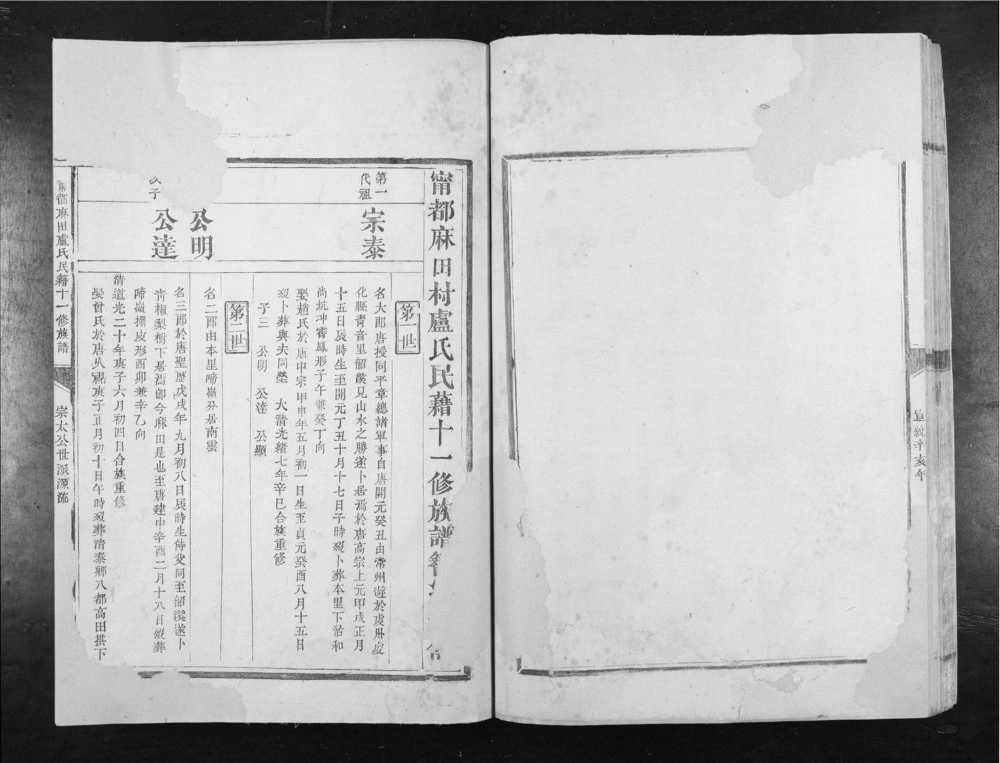 宣統辛亥年
甯都麻田村盧氏民藉十一修族譜
第一代祖
宗泰
第一世
名大郎唐授同平章總諸軍事自唐開元癸丑由常州遊於虔州虔
化縣青音里韶溪見山水之勝遂卜居焉於唐高宗上元甲戌正月
十五日辰時生至開元丁丑十月十七日子時歿卜葬本里下沽和
尚坑冲霄鳳形子午兼癸丁向
娶趙氏於唐中宗甲申年五月初一日生至貞元癸酉八月十五日
歿卜葬與夫同塋 大清光緒七年辛巳合族重修
子三 公明 公達 公顯
第二世
公明
名二郎由本里啼嶺分居南雲
次子
公達
名三郎於唐聖歷戊戌年九月初八日辰時生侍父同至韶溪遂卜
青椒梨樹下居焉卽今麻田是也至唐建中辛酉二月十八日歿葬
啼嶺搠皮形酉卯兼辛乙向
清道光二十年庚子六月初四日合族重修
娶曾氏於唐久視庚子正月初十日午時歿葬清泰鄉八都高田拱下
甯都麻田盧氏民藉十一修族譜
崇太公世派源流